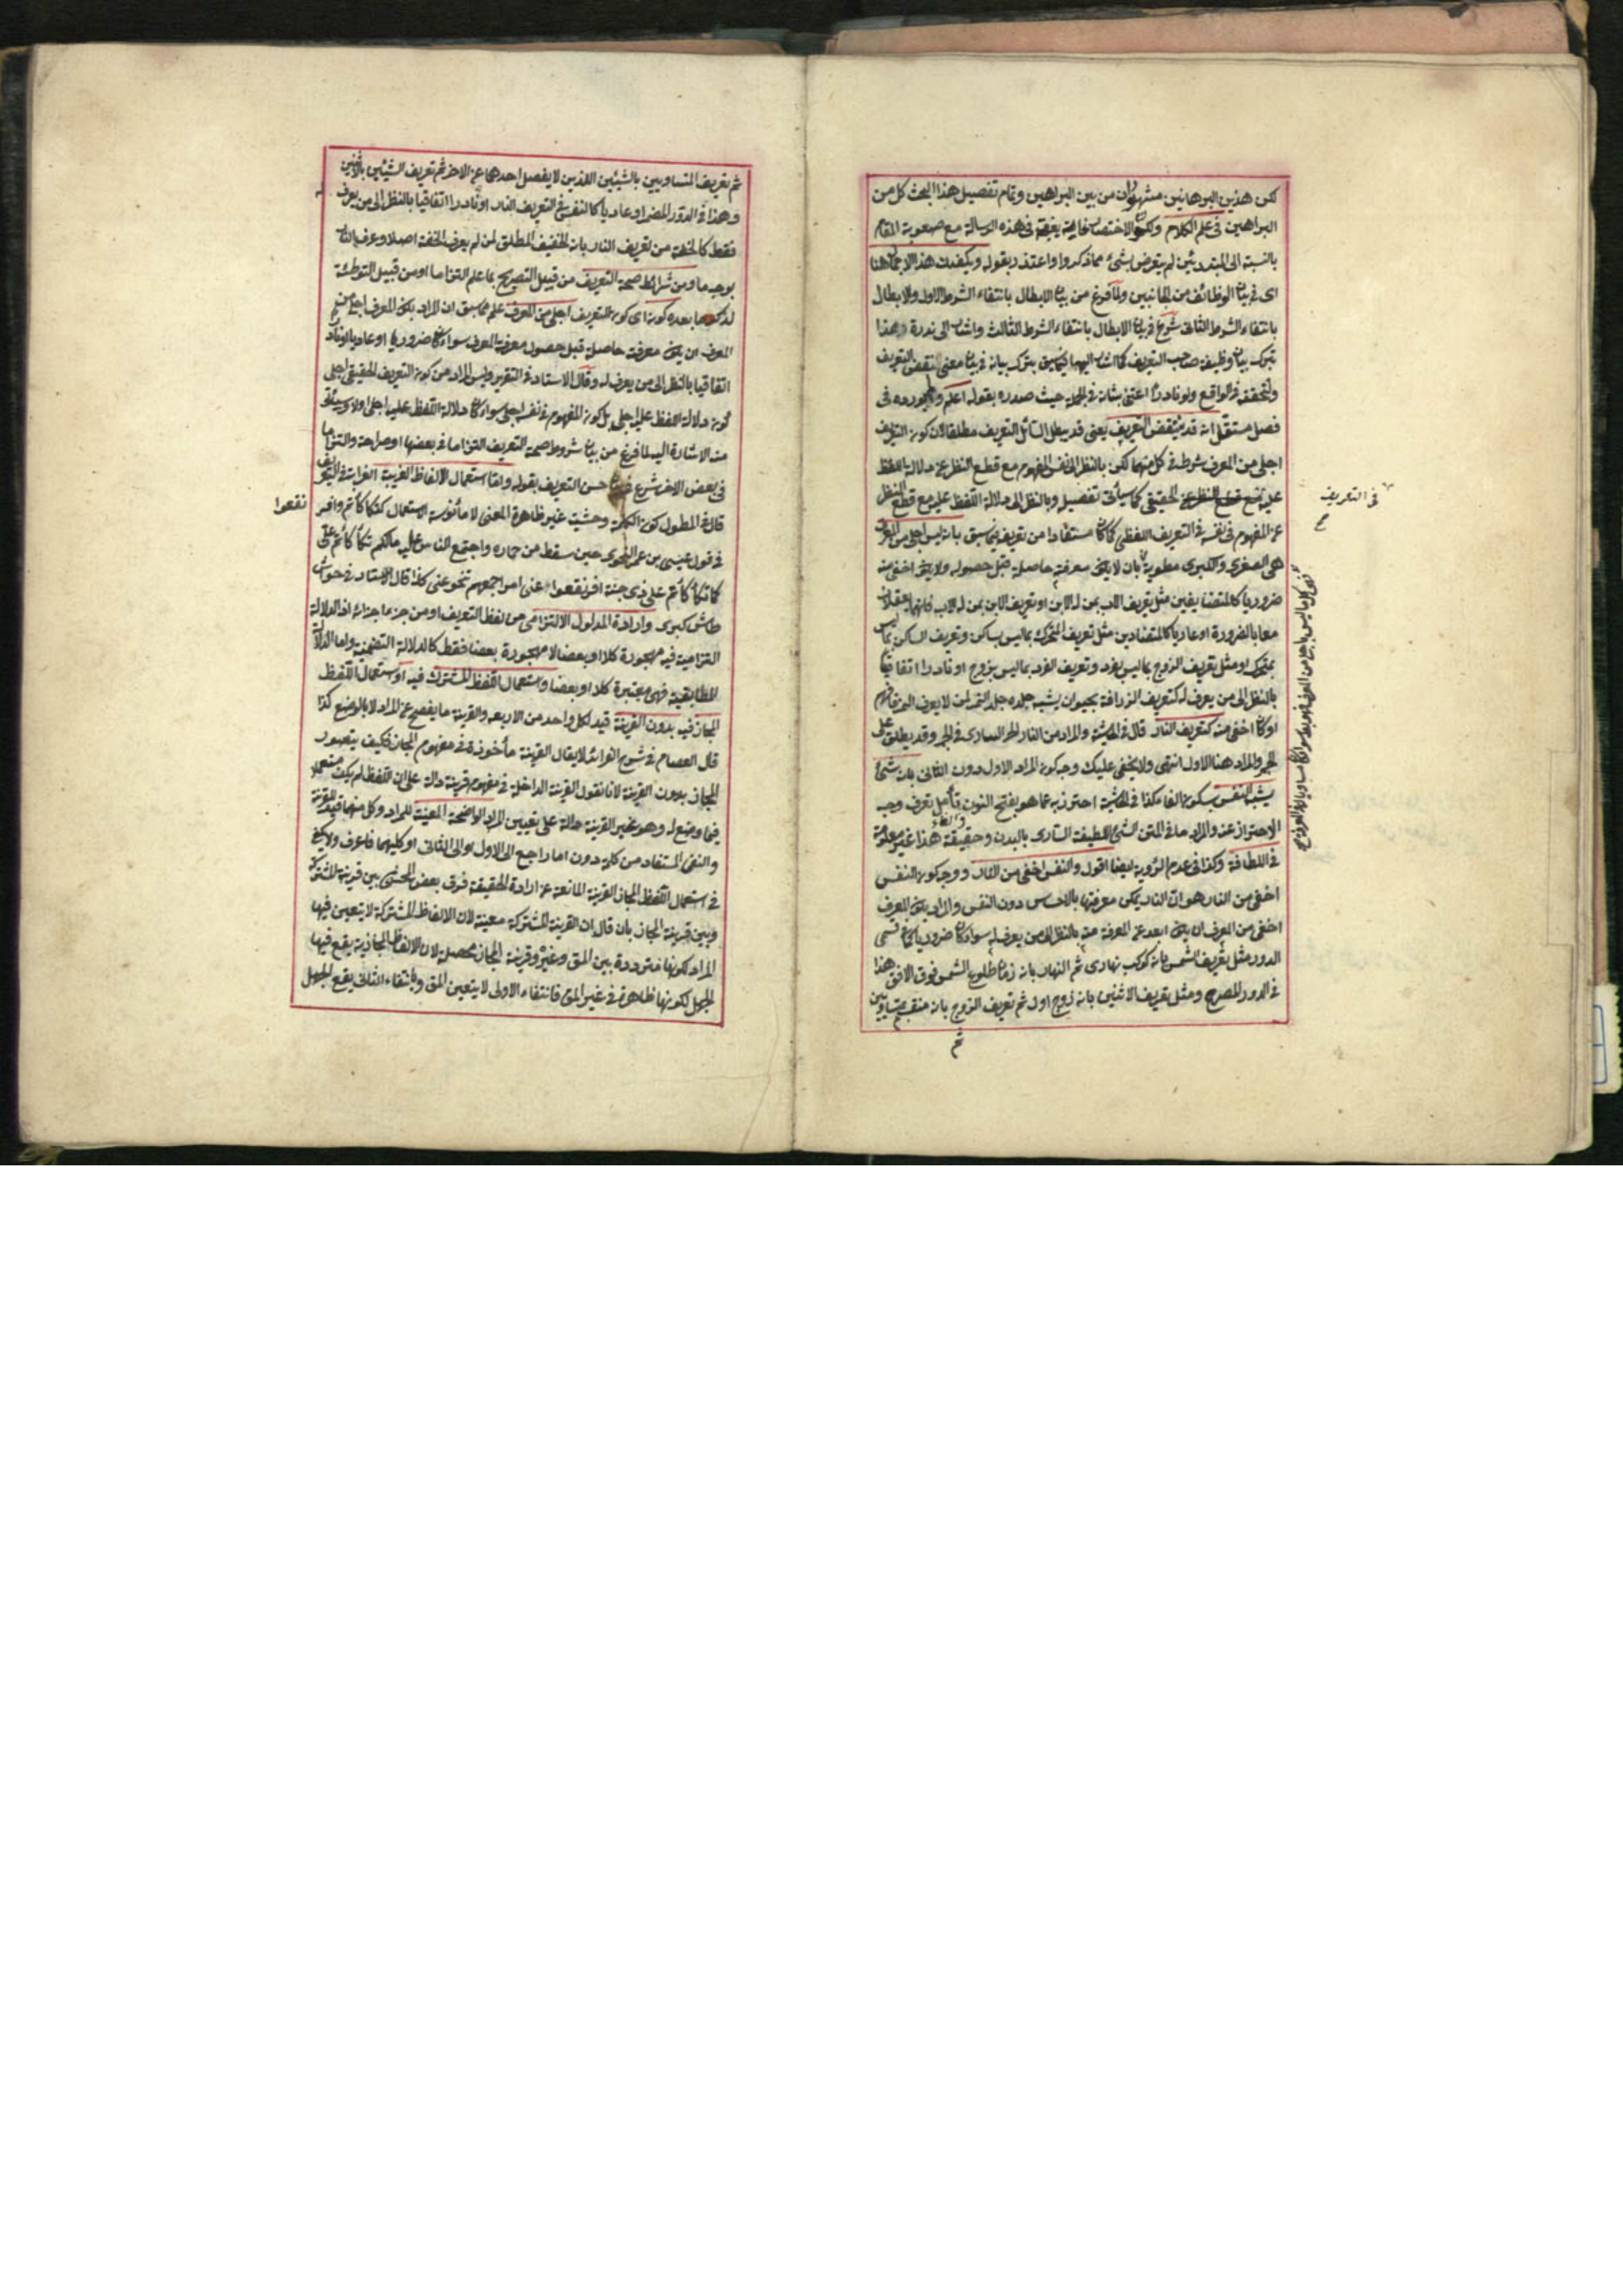 لكن هذين البرهانين مشهوران من بين البراهين وتمام تفصيل هذا البحث كل من
البراهين في علم الكلام ولكون الاختصار في هذه الرسالة مع صعوبة المقام
بالنسبة الى المبتدئين لم يتعرض بشئ مما ذكروا واعتذر بقوله ويكفيك هذا الاجمال هنا
اى في بيان الوظائف من الجانبين ولما فرغ من بيان الابطال بانتفاء الشرط الاول والابطال
بانتفاء الشرط الثانى شرع في بيان الابطال بانتفاء الشرط الثالث واشار الى ندرة هذا
بترك بيان وظيفة صاحب التعريف كما اشار اليهما فيما سبق بترك بيانه في بيان معنى النقض التعريف
ولتحققه في الواقع ولو نادرا اعتنى بشانه في الجملة حيث صدره بقوله اعلم ولم يورده في
فصل مستقل انه قد ينقض التعريف يعنى قد يبطل السائل التعريف مطلقا لان كون التعريف
اجلى من المعرف شرط في كل منهما لكن بالنظر الى نفس المفهوم مع قطع النظر عن دلالة اللفظ
عليه في الحقيقى كما سيأتى تفصيله وبالنظر الى دلالة اللفظ عليه مع قطع النظر
عن المفهوم في نفسه في التعريف اللفظى كما كان مستفادا من تعريفه فيما سبق بانه ليس اجلى من المعرف
هى الصغرى والكبرى مطوية بان لا يكون معرفته حاصلة قبل حصوله ولا يكون اخفى منه
ضروريا كالمتضايفين مثل تعريف الاب بمن له الابن او تعريف الابن بمن له الاب فانهما يعقلان
معا بالضرورة او عاديا كالمتضادين مثل تعريف المتحرك بما ليس بساكن وتعريف الساكن بما ليس
بمتحرك او مثل تعريف الزوج بما ليس بفرد وتعريف الفرد بما ليس بزوج او نادرا اتفاقيا
بالنظر الى من يعرف له كتعريف الزرافة بحيوان يشبه جلده جلد النمر لمن لا يعرف النمر فافهم
او كان اخفى منه كتعريف النار قال في الحاشية والمراد من النار الحر السارى في الجمر وقد يطلق على
الجمر والمراد هنا الاول انتهى ولا يخفى عليك وجه كون المراد الاول دون الثانى بانه شئ
يشبه النفس بسكون الفاء كذا في الحاشية احترز به عما هو بفتح النون تأمل تعرف وجه
الاحتراز عنه والمراد ما في المتن الشئ اللطيفة السارى بالبدن وحقيقة هذا غير معلومة
في اللطافة وكذا في عدم الرؤية ايضا اقول والنفس اخفى من النار ووجه كون النفس
اخفى من النار هو ان النار يمكن معرفتها بالاحساس دون النفس والمراد بكون المعرف
اخفى من المعرف ان يكون ابعد عن المعرفة منه بالنظر الى من يعرف له سواء كان ضروريا كما في قسمى
الدور مثل تعريف الشمس بانه كوكب نهارى ثم النهار بانه زمان طلوع الشمس فوق الافق هذا
في الدور المصرح ومثل تعريف الاثنين بانه زوج اول ثم تعريف الزوج بانه منقسم بمتساويين
ثم
في التعريف
صح
ثم تعريف المتساويين بالشيئين اللذين لا يفصل احدهما عن الاخر ثم تعريف الشيئين بالاثنين
وهذا في الدور المضمر او عاديا كالنفس في التعريف النار او نادرا اتفاقيا بالنظر الى من يعرف
فقط كالخفة من تعريف النار بانه الخفيف المطلق لمن لم يعرف الخفة اصلا وعرف النار
بوجه ما ومن شرائط صحة التعريف من قبيل التصريح بما علم التزاما او من قبيل التوطئة
لذكر ما بعده كونه اى كون التعريف اجلى من المعرف علم مما سبق ان المراد بكون المعرف اجلى من
المعرف ان يكون معرفته حاصلة قبل حصول معرفة المعرف سواء كان ضروريا او عاديا او نادرا
اتفاقيا بالنظر الى من يعرف له وقال الاستاد في التقرير وليس المراد من كون التعريف الحقيقى اجلى
كون دلالة اللفظ عليه اجلى بل كون المفهوم في نفسه اجلى سواء كان دلالة اللفظ عليه اجلى اولا وسيأتى
منه الاشارة اليه ولما فرغ من بيان شروط صحة التعريف التزاما في بعضها او صراحة والتزاما
في بعض الاخر شرع في بيان حسن التعريف بقوله واما استعمال الالفاظ الغريبة الغرابة في التعريف
قال في المطول كون الكلمة وحشية غير ظاهرة المعنى لا مأنوسة الاستعمال كتكأكأتم وافر
في قول عيسى بن عمر النحوى حين سقط من حماره واجتمع الناس عليه مالكم تكأكأتم على
كما تكأكأتم على ذى جنة افرنقعوا عنى امر اجمعهم تنحو عنى كذا قال الاستاد في حواشى
طاش كبرى وارادة المدلول الالتزامى من لفظ التعريف او من جزء ما جزائه اذ الدلالة
التزامية فيه مهجورة كلا او بعضا لا مهجورة بعضا فقط كالدلالة التضمنية واما الدلالة
المطابقية فهى معتبرة كلا او بعضا واستعمال اللفظ المشترك فيه او استعمال اللفظ
المجاز فيه بدون القرينة قيد لكل واحد من الاربعه والقرينة ما يفصح عن المراد لا بالوضع كذا
قال العصام في شرح الفوائد لا يقال القرينة مأخوذة في مفهوم المجاز فكيف يتصور
المجاز بدون القرينة لانا نقول القرينة الداخلة في مفهومه قرينة دالة على ان اللفظ لم يكن مستعملا
فيما وضع له وهو غير القرينة دالة على تعيين المراد الواضحة المعينة للمراد وكل منهما قيد للقرينة
والنفى المستفاد من كلمة دون اما راجع الى الاول او الى الثانى او كليهما فاعرف ولا يكفى
في استعمال اللفظ المجاز القرينة المانعة عن ارادة الحقيقة فرق بعض المحشى بين قرينة المشتركة
وبين قرينة المجاز بان قال ان القرينة المشتركة معينة لان الالفاظ المشتركة لا يتعين فيها
المراد لكونها مترددة بين المق وغيره وقرينة المجاز محصلة لان الالفاظ المجازية يقع فيها
الجهل لكونها ظاهرة في غير المق فانتفاء الاولى لا يتعين المق وبانتفاء الثانى يقع الجهل
نقعوا